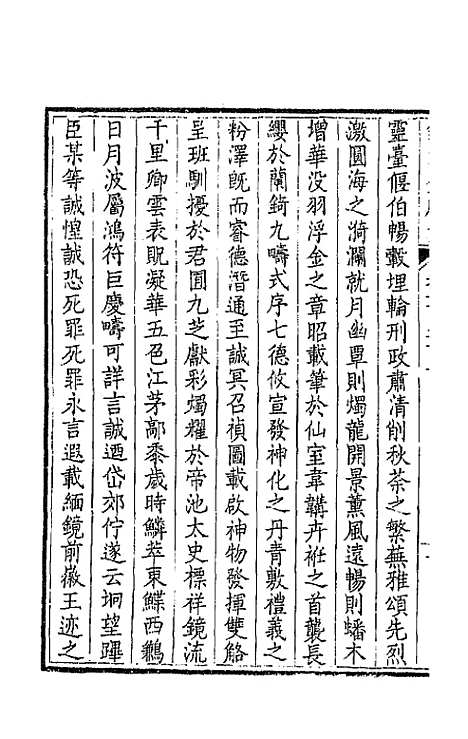 靈臺偃伯暢轂埋輪刑政肅清削秋荼之繁蕪雅頌先烈
激圓海之漪瀾就月幽覃則燭龍開景薰風遠暢則蟠木
增華没羽浮金之章昭載筆於仙室韋韝卉袵之首襲長
纓於蘭錡九疇式序七德攸宣發神化之丹青敷禮義之
粉澤既而睿德潛通至誠冥召禎圖載啟神物發揮雙觡
呈班馴擾於君囿九芝獻彩燭耀於帝池太史標祥鏡流
千里卿雲表貺凝華五色江茅鄗黍歲時鱗萃東鰈西鶼
日月波屬鴻符巨慶疇可詳言誠迺岱郊佇邃云坰望蹕
臣某等誠惶誠恐死罪死罪永言遐載緬鏡前徽王迹之